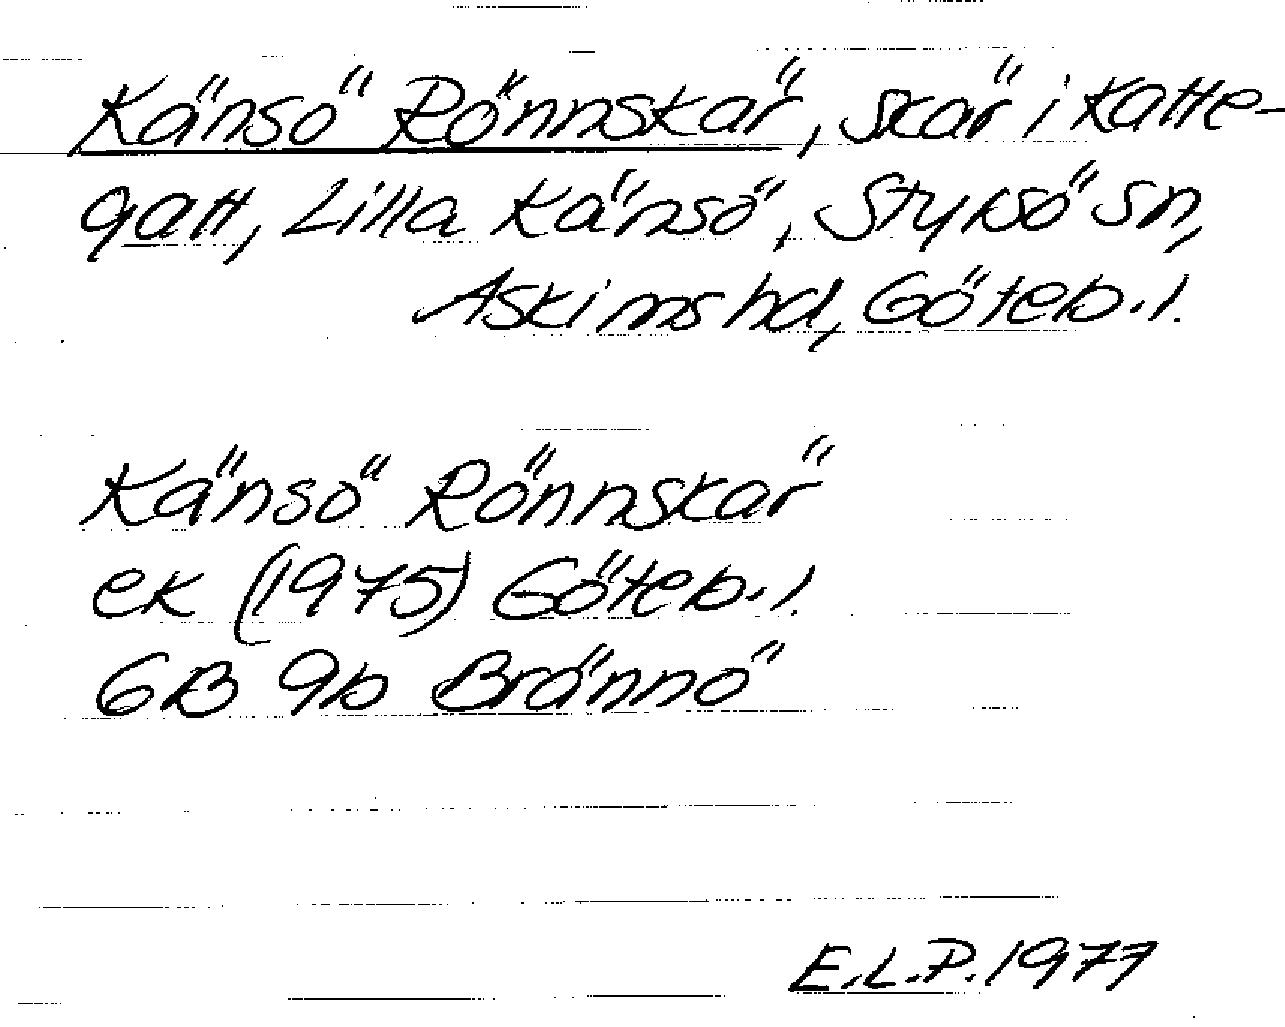 Känsö Rönnskär, skär i Katte-
gatt, Lilla Känsö, Styrsö sn,
Askims hd, Göteb. l.
Känsö Rönnskär
ek (1975) Göteb. l.
6B 9b Brännö
E.L.P. 1977